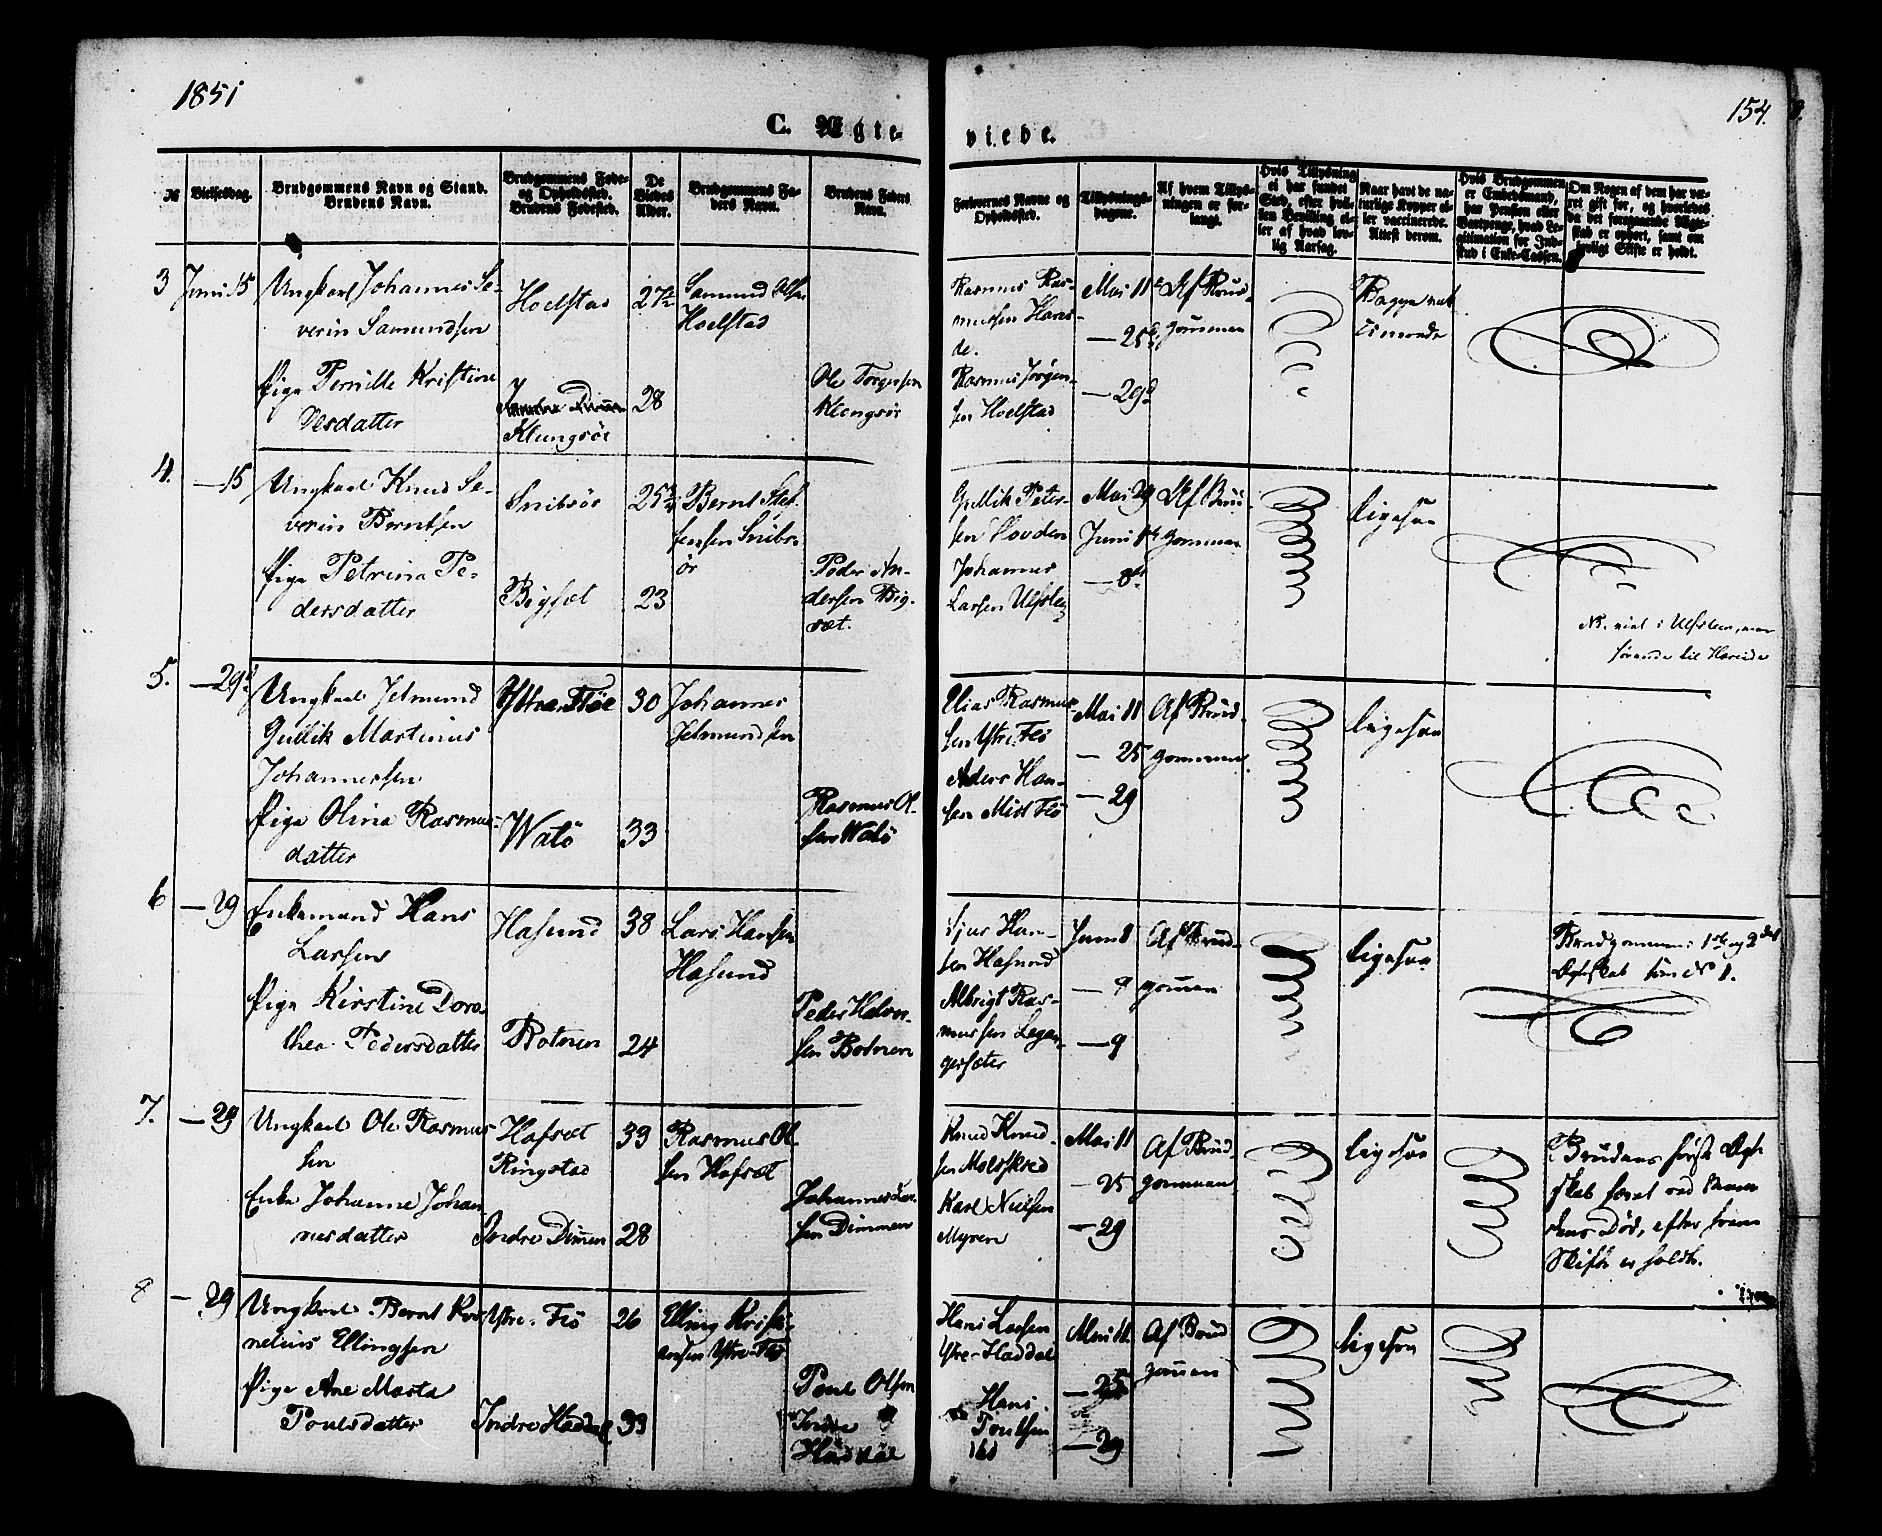 1851
154.
C. Ægte-
viede.
No
Vielsesdag.
Brudgommens Navn og Stand.
Brudens Navn.
Brudgommens Føde-
og Opholdssted.
Brudens Fødested.
De
Viedes
Alder.
Brudgommens Fa-
ders Navn.
Brudens Faders
Navn.
Forlovernes Navne og
Opholdssted.
Tillysnings-
dagene.
Af hvem Tillys-
ningen er for-
langt.
Hvis Tillysning
ei har fundet
Sted, efter hvil-
ken Bevilling el-
ler af hvad lov-
lig Aarsag.
Naar havt de na-
turlige Kopper el-
ler vaccinerede.
Attest derom.
Hvis Brudgommen
er Embedsmand,
har Pension eller
Vartpenge, hvad Le-
gitimation for Ind-
skud i Enke-Cassen.
Om Nogen af dem har væ-
ret gift før, og hvorledes
da det foregaaende Ægte-
skab er ophørt, samt om
lovligt Skifte er holdt.
3 Juni 15
Ungkarl Johannes Se-
verin Samundsen
Pige Pernille Kristine
Olsdatter
Hoelstad
Klungsör
27½
28
Samund Olsen
Hoelstad
Ole Torgersen
Klungsör
Rasmus Ras-
mussen Harei-
de.
Rasmus Jörgen-
sen Hoelstad
Mai 11
— 25
— 29
Af Brud-
gommen
Begge vak-
cinerede
4. — 15
Ungkarl Knud Se-
verin Berntsen
Pige Petrine Pe-
dersdatter
Snibsör
Bigset
25½
23
Bernt Stef-
fensen Snibs-
ör
Peder An-
dersen Big-
sæt.
Gullik Peter-
sen Hovden
Johannes
Larsen Ulfsten
Mai 29
Juni 1
— 8
Af Brud-
gommen
ligesaa
NB. viet i Ulfsten, men
hörende til Hareide
5. — 29
Ungkarl Jetmund
Gullik Martinus
Johannessen
Pige Olina Rasmus-
datter
Ytre Flöe
Watö
30
33
Johannes
Jetmundsen
Rasmus Ol-
sen Watö
Elias Rasmus-
sen Ytre-Flö
Anders Han-
sen Mid Flö
Mai 11
— 25
— 29
Af Brud-
gommen
ligesaa
6 — 29
Enkemand Hans
Larsen
Pige Kirstine Doro-
thea Pedersdatter
Hasund
Botnen
38
24
Lars Hansen
Hasund
Peder Halvor-
sen Botnen
Sjur Han-
sen Hasund
Albrigt Ras-
mussen Legan-
gersæter
Juni 1
— 9
— 9
Af Brud-
gommen
ligesaa
Brudgommens 1ste og 2det
Ægteskab som No 1.
7. — 29
Ungkarl Ole Rasmus
sen
Enke Johanne Johan
nesdatter
Hafsæt
Ringstad
Indre Dimmen
39
28
Rasmus Ol-
sen Hafsæt
Johannes Lar-
sen Dimmen
Knud Knud-
sen Molskred
Karl Nielsen
Myren
Mai 11
— 25
— 29
Af Brud-
gommen
ligesaa
Brudens förste Ægte
skab hævet ved Man
dens Död, efter hvem
Skifte er holdt.
8 — 29
Ungkarl Bernt Kor
nelius Ellingsen
Pige Ane Marta
Poulsdatter
Ytre-Flö
Indre Haddal
26
33
Elling Kristi-
ansen Ytre-Flö
Poul Olsen
Indre
Haddal
Hans Larsen
Ytre-Haddal
Hans
Poulsen
ibd
Mai 11.
— 25
— 29
Af Brud
gommen
ligesaa